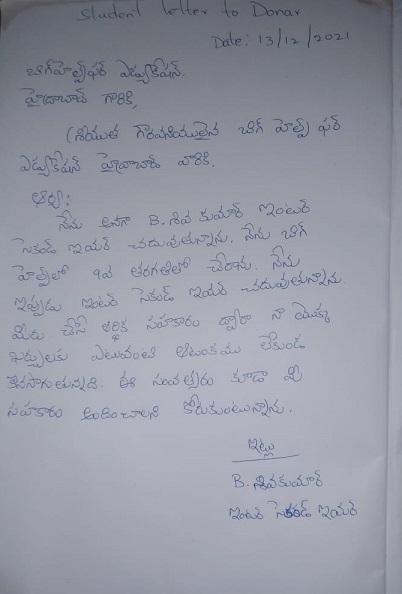 Student letter to Donar
Date: 13/12/2021
బిగ్‌హెల్ప్‌ఫర్ ఎడ్యుకేషన్.
హైదాబాద్ గారికి,
శ్రీయుత గౌరవనియులైన బిగ్ హెల్ప్ ఫర్
ఎడ్యుకేషన్ హైదాబాద్ వారికి.
ఆర్య:
నేను అనగా B. శివ కుమార్ ఇంటర్
సెకండ్ ఇయర్ చదువుతున్నాను. నేను బిగ్
హెల్ప్‌లో 9వ తరగతిలో చేరాను. నేను
ఇప్పుడు ఇంటర్ సెకండ్ ఇయర్ చదువుతున్నాను.
మీరు చేసే ఆర్థిక సహకారం ద్వారా నా యొక్క
ఖర్చులకు ఎటువంటి ఆటంకము లేకుండ
కొనసాగుతున్నది. ఈ సంవత్సరం కూడా మీ
సహకారం అందించాలని కోరుకుంటున్నాను.
ఇట్లు
B. శివకుమార్
ఇంటర్ సెకండ్ ఇయర్